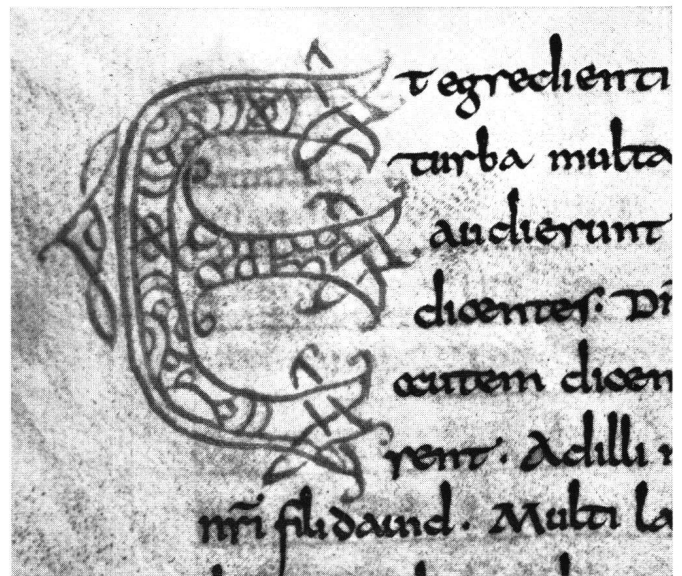 Et egredienti
turba multa
audierunt
dicentes. Di
autem dicen
rent. Ad illi
nr̄i fili dauid. Multi la